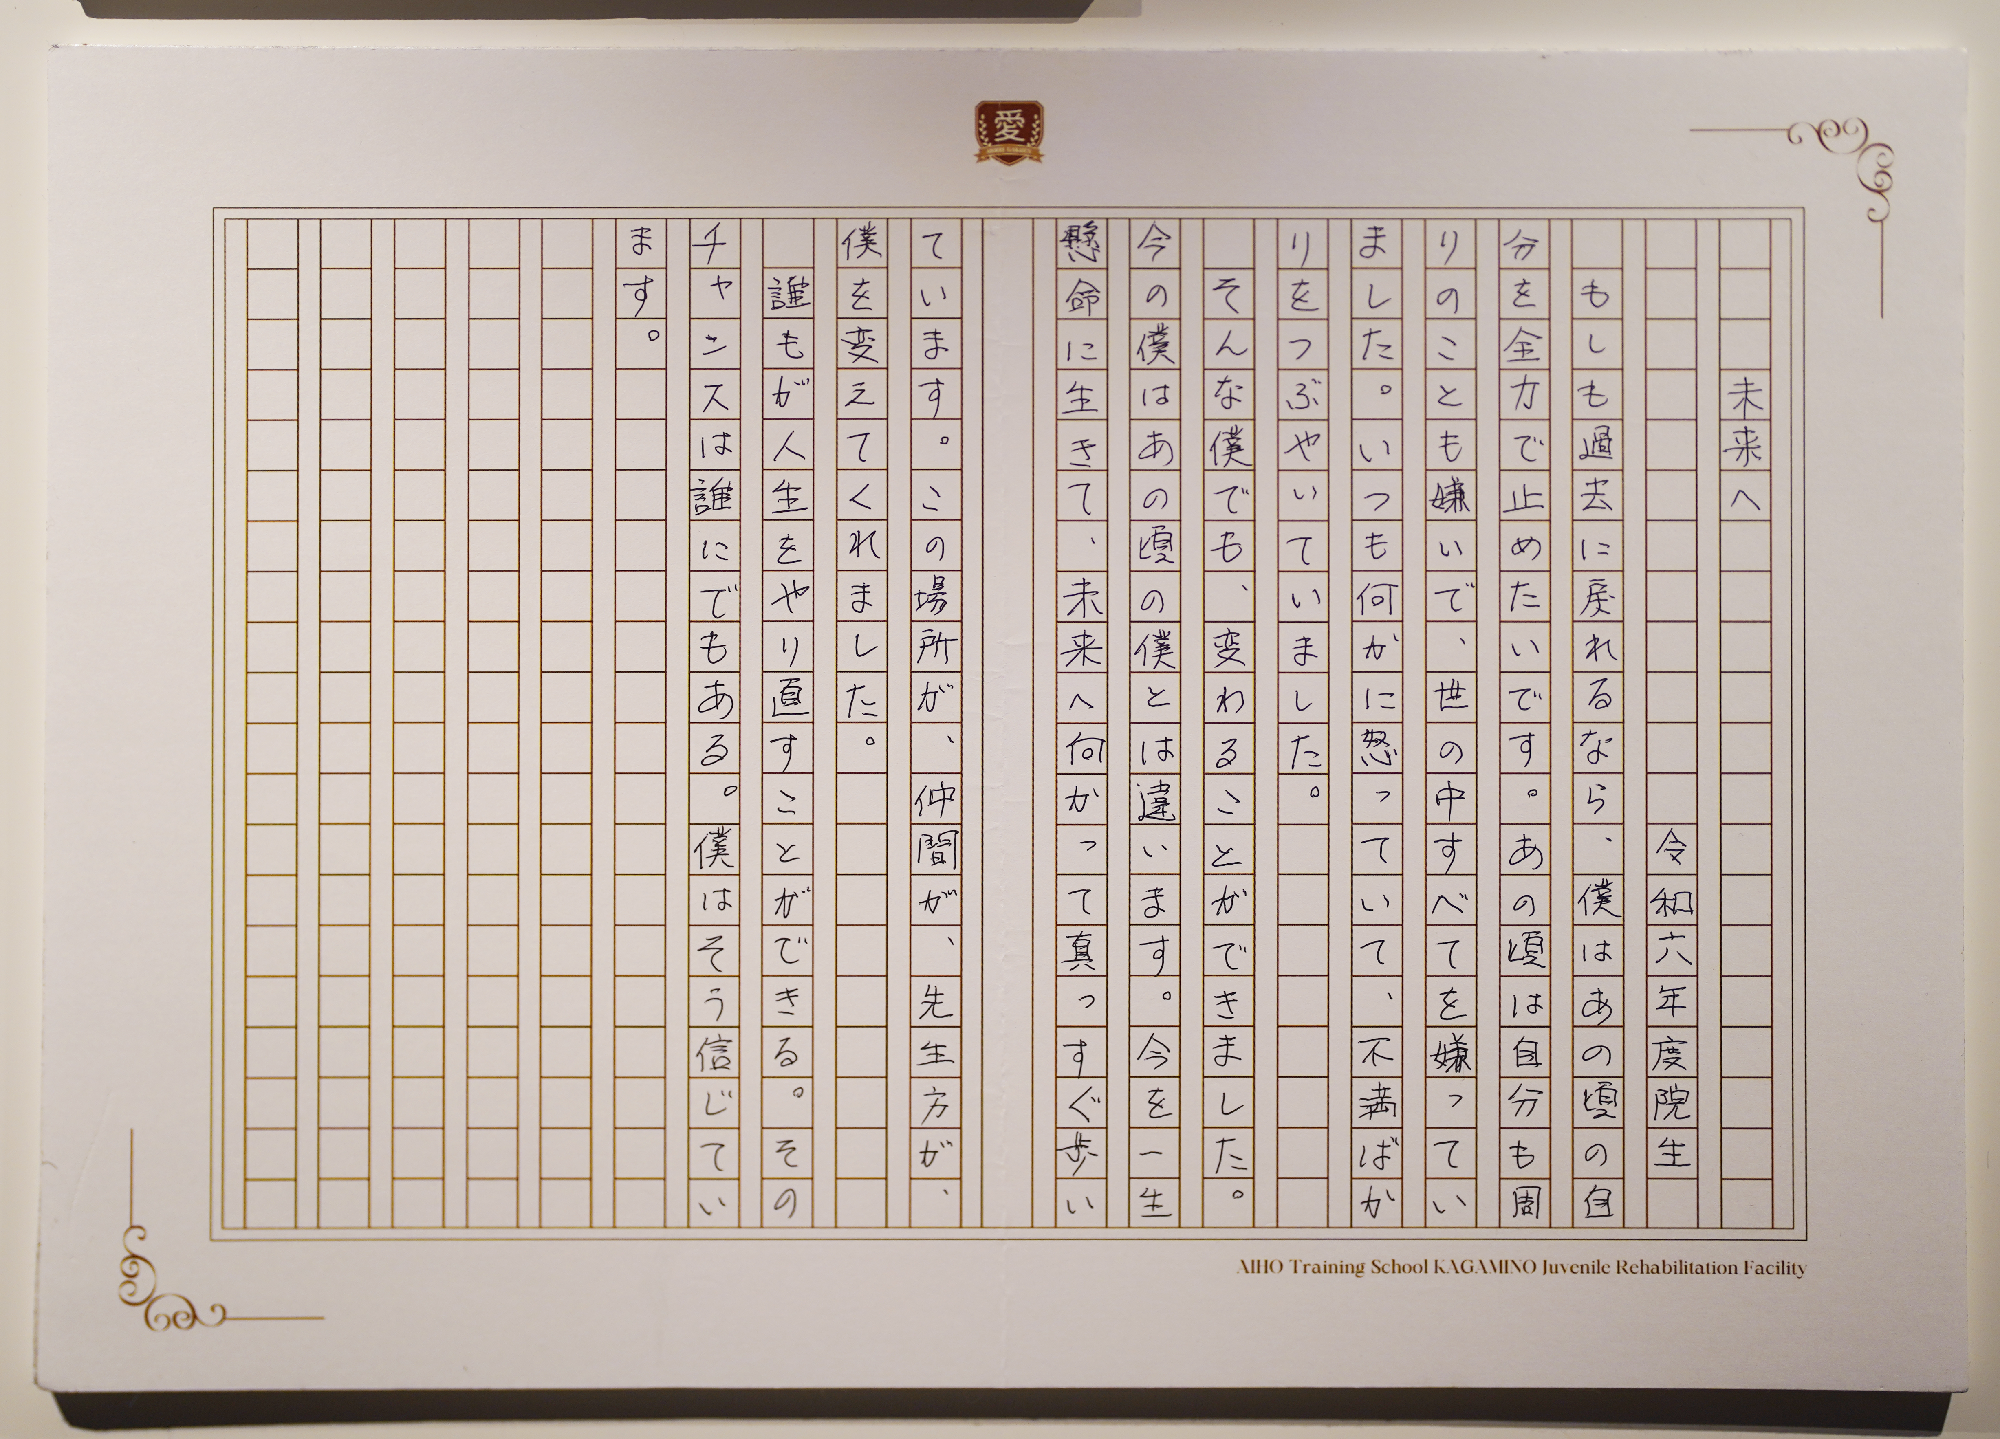 愛
未来へ
令和六年度院生
もしも過去に戻れるなら、僕はあの頃の自
分を全力で止めたいです。あの頃は自分も周
りのことも嫌いで、世の中すべてを嫌ってい
ました。いつも何かに怒っていて、不満ばか
りをつぶやいていました。
そんな僕でも、変わることができました。
今の僕はあの頃の僕とは違います。今を一生
懸命に生きて、未来へ向かって真っすぐ歩い
ています。この場所が、仲間が、先生方が、
僕を変えてくれました。
誰もが人生をやり直すことができる。その
チャンスは誰にでもある。僕はそう信じてい
ます。
AIHO Training School KAGAMINO Juvenile Rehabilitation Facility